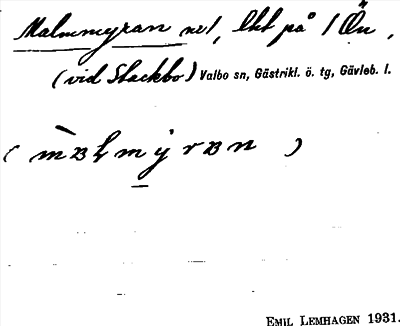 Malmmyran no1, lht på 1 Ön,
(vid Stackbo) Valbo sn, Gästrikl. ö. tg, Gävleb. l.
EMIL LEMHAGEN 1931.